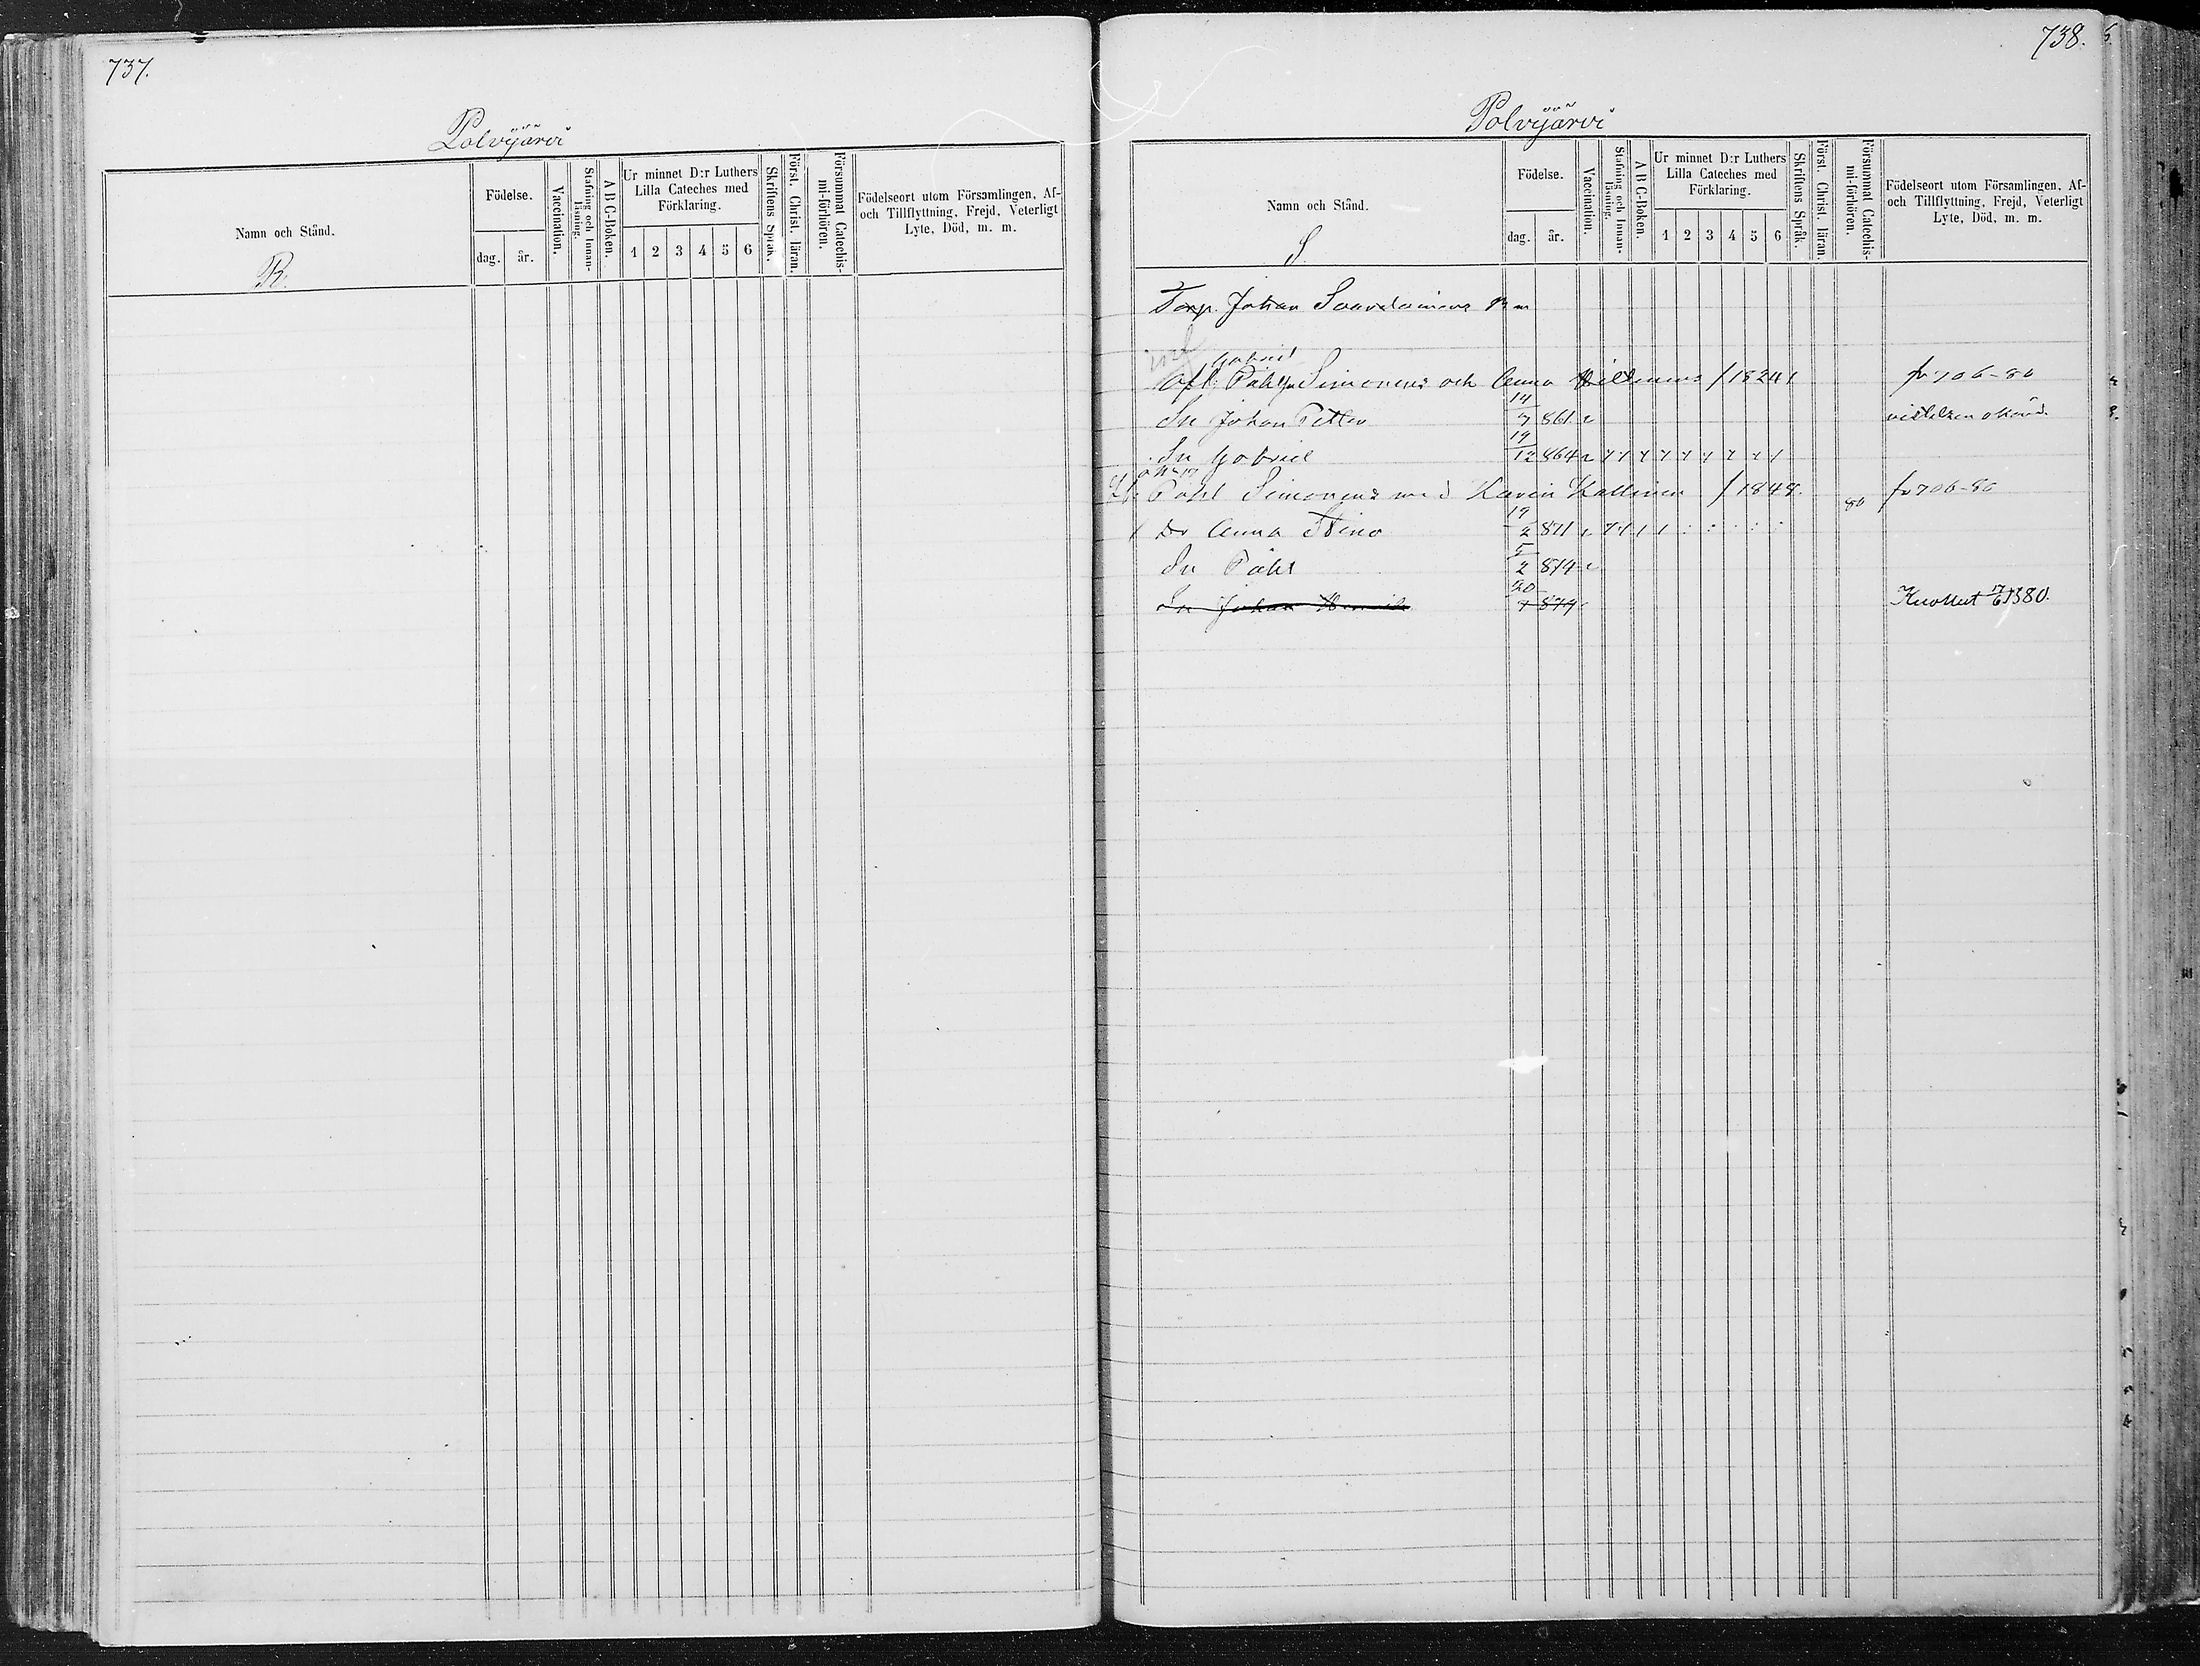 737.
Polvijärvi
Namn och Stånd.
R.
Födelse.
dag. år.
Vaccination.
Stafning och Innan-läsning.
A B C-Boken.
Ur minnet D:r Luthers
Lilla Cateches med
Förklaring.
1 2 3 4 5 6
Skriftens Språk.
Först. Christ. läran.
Försummat Catechis-mi-förhören.
Födelseort utom Församlingen, Af-
och Tillflyttning, Frejd, Veterligt
Lyte, Död, m. m.
738.
Polvijärvi
Namn och Stånd.
S.
Födelse.
dag. år.
Vaccination.
Stafning och Innan-läsning.
A B C-Boken.
Ur minnet D:r Luthers
Lilla Cateches med
Förklaring.
1 2 3 4 5 6
Skriftens Språk.
Först. Christ. läran.
Försummat Catechis-mi-förhören.
Födelseort utom Församlingen, Af-
och Tillflyttning, Frejd, Veterligt
Lyte, Död, m. m.
Torp. Johan
Gabriel
Påhl Simonens och Anna /1824/ fr 706-80
Sn Johan Petter 14/7 861
Sn Gabriel 19/12 864
Påhl Simonens med Karin /1848. 80 fr 706-80
Dr Anna Stina 19/2 871
Sn Påhl 5/2 874
Sn Johan Henrik 20/7 879 Kuollut 17/6 1880.